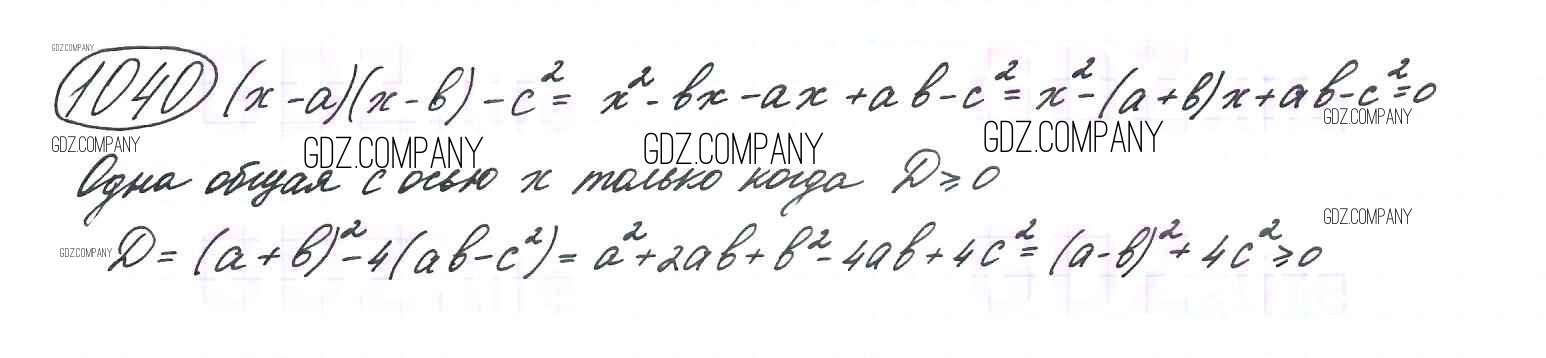 GDZ.COMPANY
1040 (x-a)(x-b)-c²= x²-bx-ax+ab-c²=x²-(a+b)x+ab-c²=0
GDZ.COMPANY
GDZ.COMPANY GDZ.COMPANY GDZ.COMPANY GDZ.COMPANY
Одна общая с осью x только когда D≥0
GDZ.COMPANY
GDZ.COMPANY D=(a+b)²-4(ab-c²)=a²+2ab+b²-4ab+4c²=(a-b)²+4c²≥0